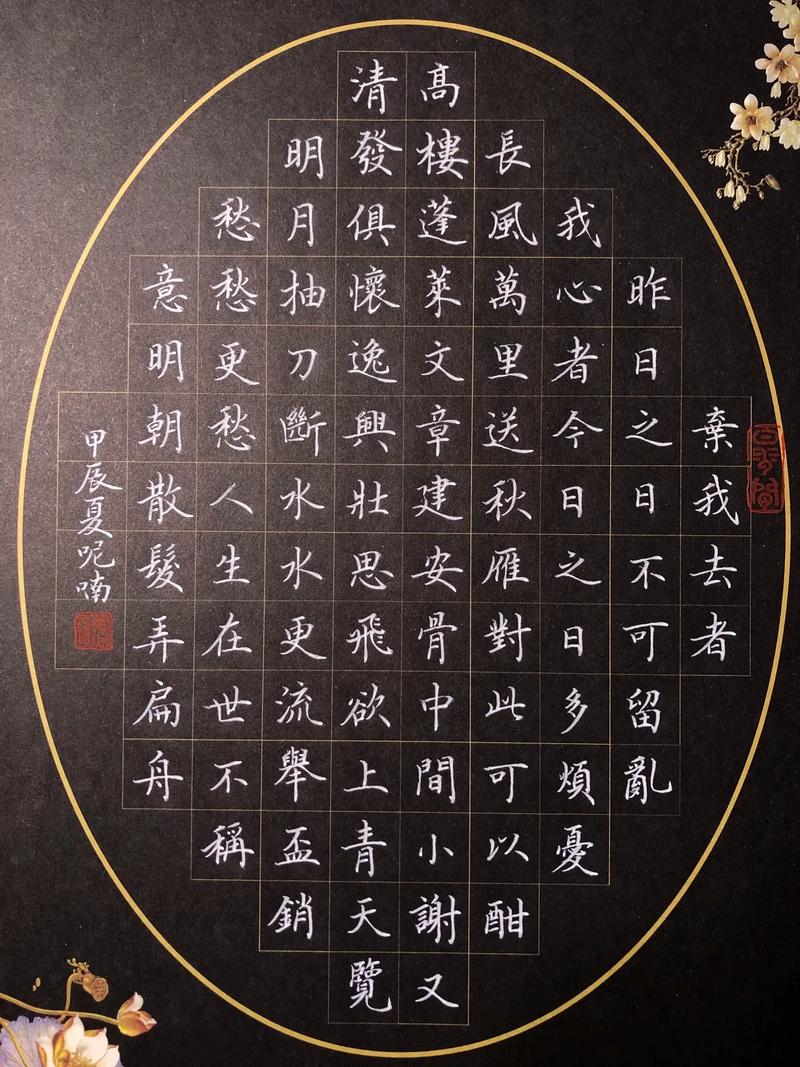 棄我去者
昨日之日不可留亂
我心者今日之日多煩憂
長風萬里送秋雁對此可以酣
高樓蓬萊文章建安骨中間小謝又
清發俱懷逸興壯思飛欲上青天覽
明月抽刀斷水水更流舉盃銷
愁愁更愁人生在世不稱
意明朝散髮弄扁舟
甲辰夏呢喃